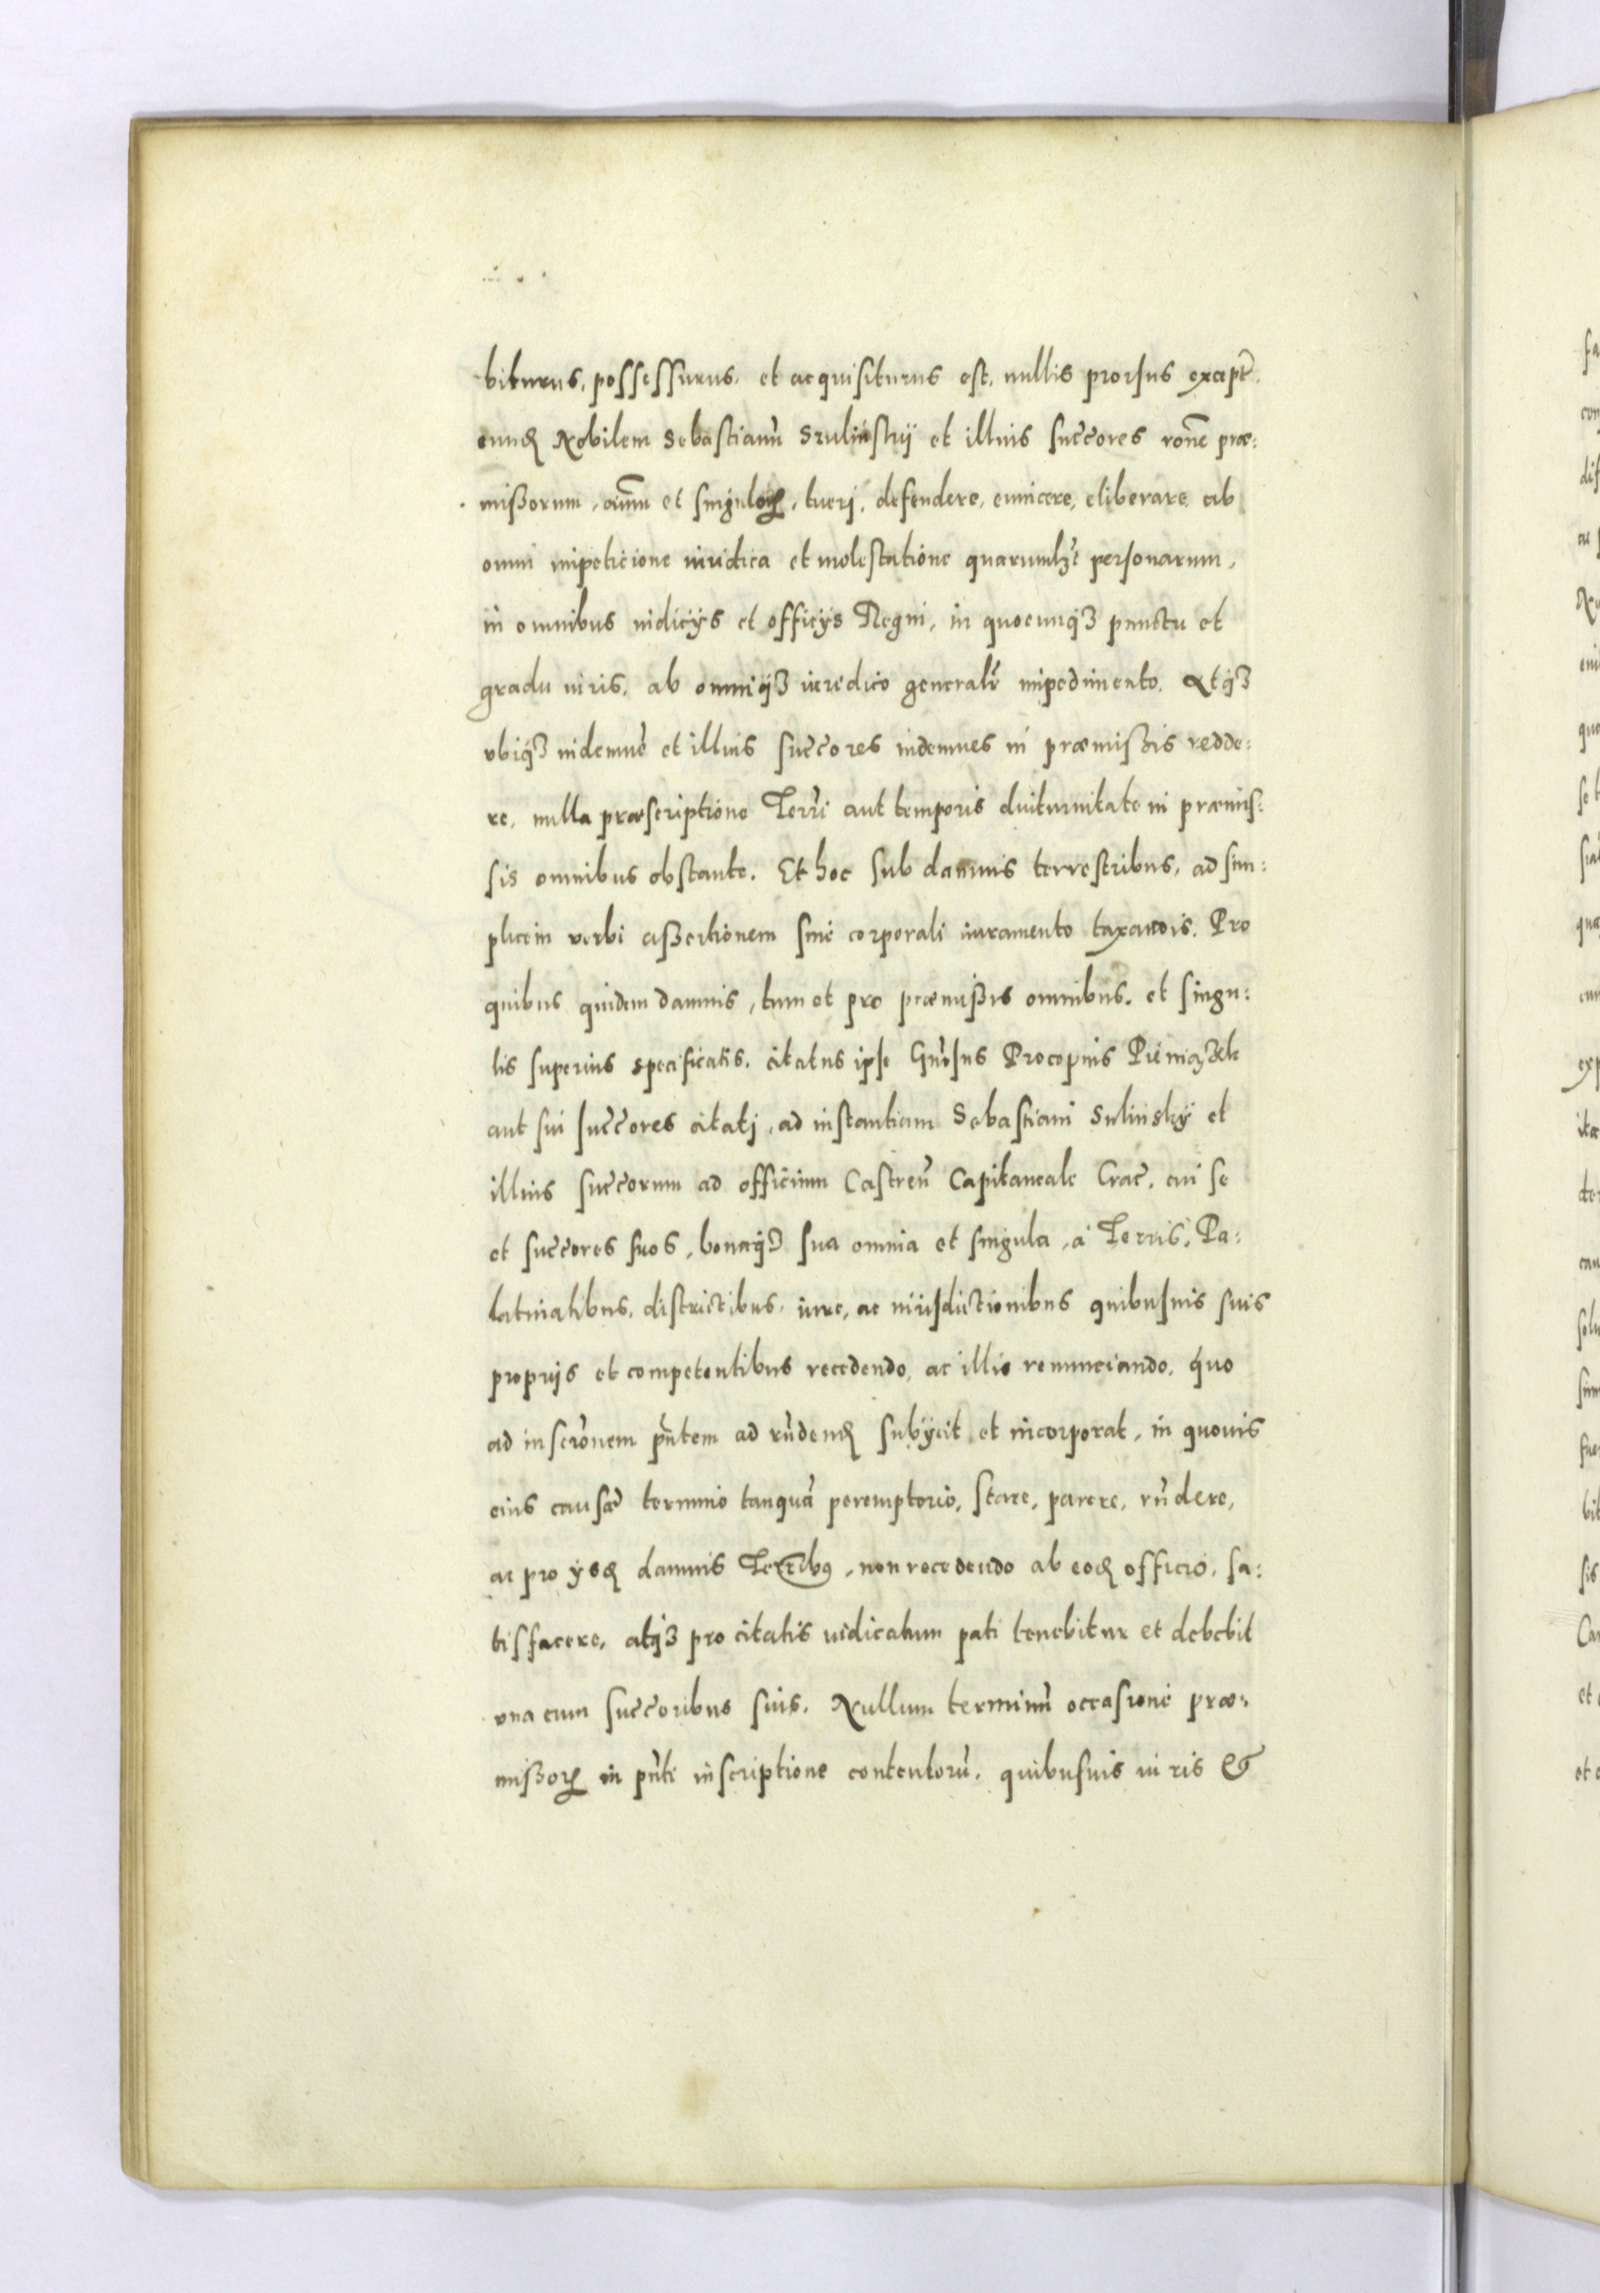 biturus, possessurus, et acquisiturus est, nullis prorsus except̃.
eund̃ Nobilem Sebastianũ Szulinskij et illius succ̃ores rõne præ:
missorum, oĩum et singuloꝝ, tueri, defendere, euincere, eliberare, ab
omni impeticione iuridica et molestatione quarumlꝫt personarum,
in omnibus iudicijs et officijs Regni, in quocunqꝫ punctu et
gradu iuris, ab omniqꝫ iuredico generalr̃ impedimento. Atqꝫ
vbiqꝫ indemnẽ et illius succ̃ores indemnes in præmissis redde:
re, nulla præscriptione Terrĩ aut temporis diuturnitate in præmis:
sis omnibus obstante. Et hoc sub damnis terrestribus, ad sim:
plicem verbi assertionem sine corporali iuramento taxandis. Pro
quibus quidem damnis, tum et pro præmissis omnibus, et singu:
lis superius specificatis, citatus ipse Gñrosus Procopius Pieniązek
aut sui succ̃ores citati, ad instantiam Sebastiani Sulinsky et
illius succ̃orum ad officium Castreñ Capitaneale Crac̃, cui se
et succ̃ores suos, bonaqꝫ sua omnia et singula, à Terris, Pa:
latinatibus, districtibus, iure, ac iurisdictionibus quibusuis suis
proprijs et competentibus recedendo, ac illis renunciando, quo
ad inscrõnem pñtem ad rñdend̃ subijcit et incorporat, in quouis
eius causæ termino tanquã peremptorio, stare, parere, rñdere,
ac pro ijsd̃ damnis Terribꝰ, non recedendo ab eod̃ officio, sa:
tisfacere, atqꝫ pro citatis iudicatum pati tenebitur et debebit
vna cum succ̃oribus suis. Nullum terminũ occasione præ:
missoꝝ in pñti inscriptione contentorũ, quibusuis iuris &